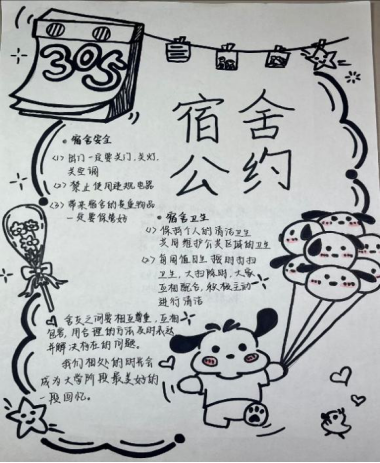 305
宿舍
公约
宿舍安全
(1) 出门一定要关门、关灯、
关空调
(2) 禁止使用违规电器
(3) 带来宿舍的贵重物品
一定要保管好
宿舍卫生
(1) 保持个人的清洁卫生
共同维护公共区域的卫生
(2) 每周值日生按时打扫
卫生,大扫除时,大家
互相配合,积极主动
进行清洁
舍友之间要相互尊重,互相
包容,用合理的方法及时表达
并解决存在的问题。
我们相处的时光会
成为大学阶段最美好的
一段回忆。